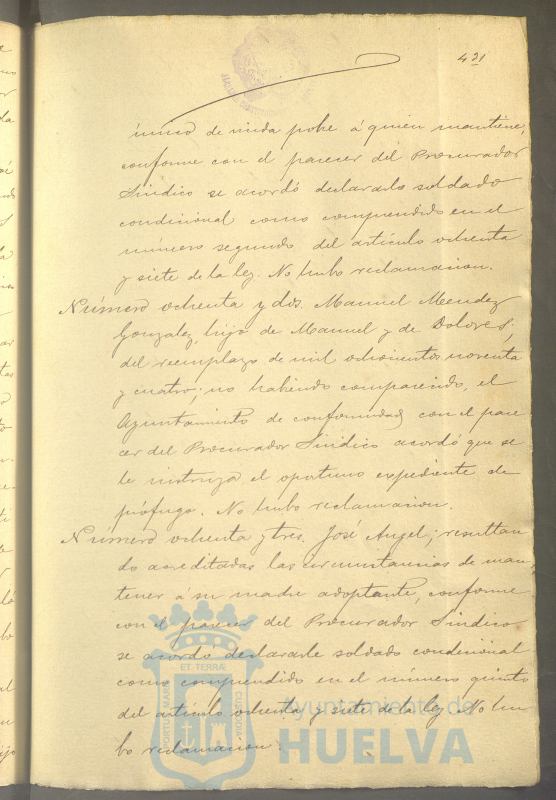 421
único de viuda pobre á quien mantiene,
conforme con el parecer del Procurador
Síndico se acordó declararlo soldado
condicional como comprendido en el
número segundo del artículo ochenta
y siete de la ley. No hubo reclamacion.
Número ochenta y dos. Manuel Mendez
Gonzalez, hijo de Manuel y de Dolores,
del reemplazo de mil ochocientos noventa
y cuatro; no habiendo comparecido, el
Ayuntamiento de conformidad con el pare
cer del Procurador Síndico acordó que se
le instruya el oportuno expediente de
prófugo. No hubo reclamacion.
Número ochenta y tres. José Angel; resultan
do acreditadas las circunstancias de man
tener á su madre adoptante, conforme
con el parecer del Procurador Síndico
se acordó declararle soldado condicional
como comprendido en el número quinto
del artículo ochenta y siete de la ley. No hu
bo reclamacion.
PORTUS MARIS
ET TERRÆ
CUSTODIA
Ayuntamiento de
HUELVA